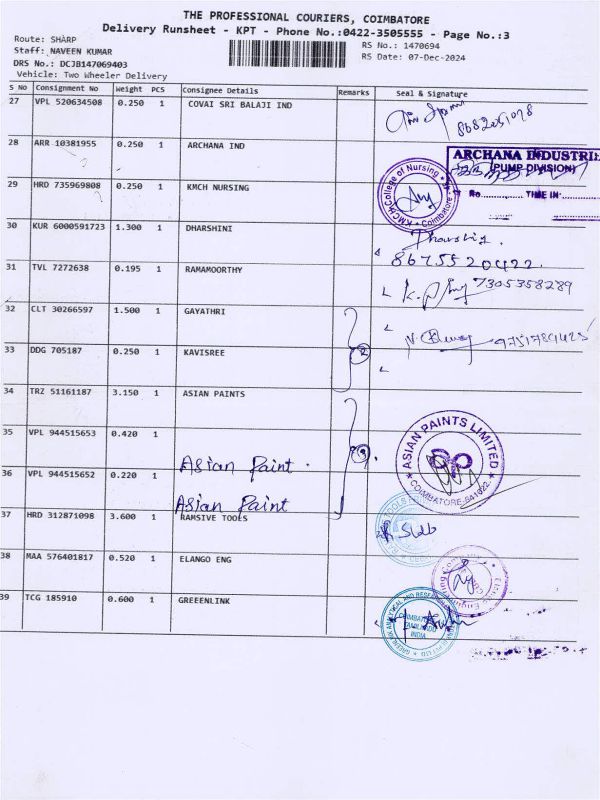 THE PROFESSIONAL COURIERS, COIMBATORE
Delivery Runsheet - KPT - Phone No.:0422-3505555 - Page No.:3
Route: SHARP
RS No.: 1470694
Staff: NAVEEN KUMAR
RS Date: 07-Dec-2024
DRS No.: DCJB147069403
Vehicle: Two Wheeler Delivery
S No Consignment No Weight PCS Consignee Details Remarks Seal & Signature
27 VPL 520634508 0.250 1 COVAI SRI BALAJI IND
28 ARR 10381955 0.250 1 ARCHANA IND
ARCHANA INDUSTRI
(PUMP DIVISION)
No TIME IN
29 HRD 735969808 0.250 1 KMCH NURSING
KMCH College of Nursing Coimbatore
30 KUR 6000591723 1.300 1 DHARSHINI
8675520422.
31 TVL 7272638 0.195 1 RAMAMOORTHY
7305358289
32 CLT 30266597 1.500 1 GAYATHRI
33 DDG 705187 0.250 1 KAVISREE
2
34 TRZ 51161187 3.150 1 ASIAN PAINTS
ASIAN PAINTS LIMITED
COIMBATORE-641022
35 VPL 944515653 0.420 1 Asian Paint.
36 VPL 944515652 0.220 1 Asian Paint
37 HRD 312871098 3.600 1 RAMSIVE TOOLS
38 MAA 576401817 0.520 1 ELANGO ENG
39 TCG 185910 0.600 1 GREEENLINK
COIMBATORE
TAMILNADU
INDIA